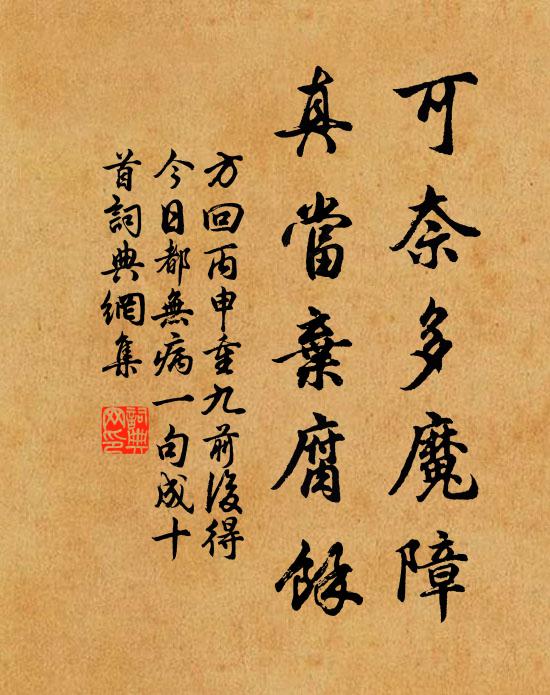 可奈多魔障
真當棄腐餘
方回丙申重九前後得
今日都無病一句成十
首詞典網集
詞典網印